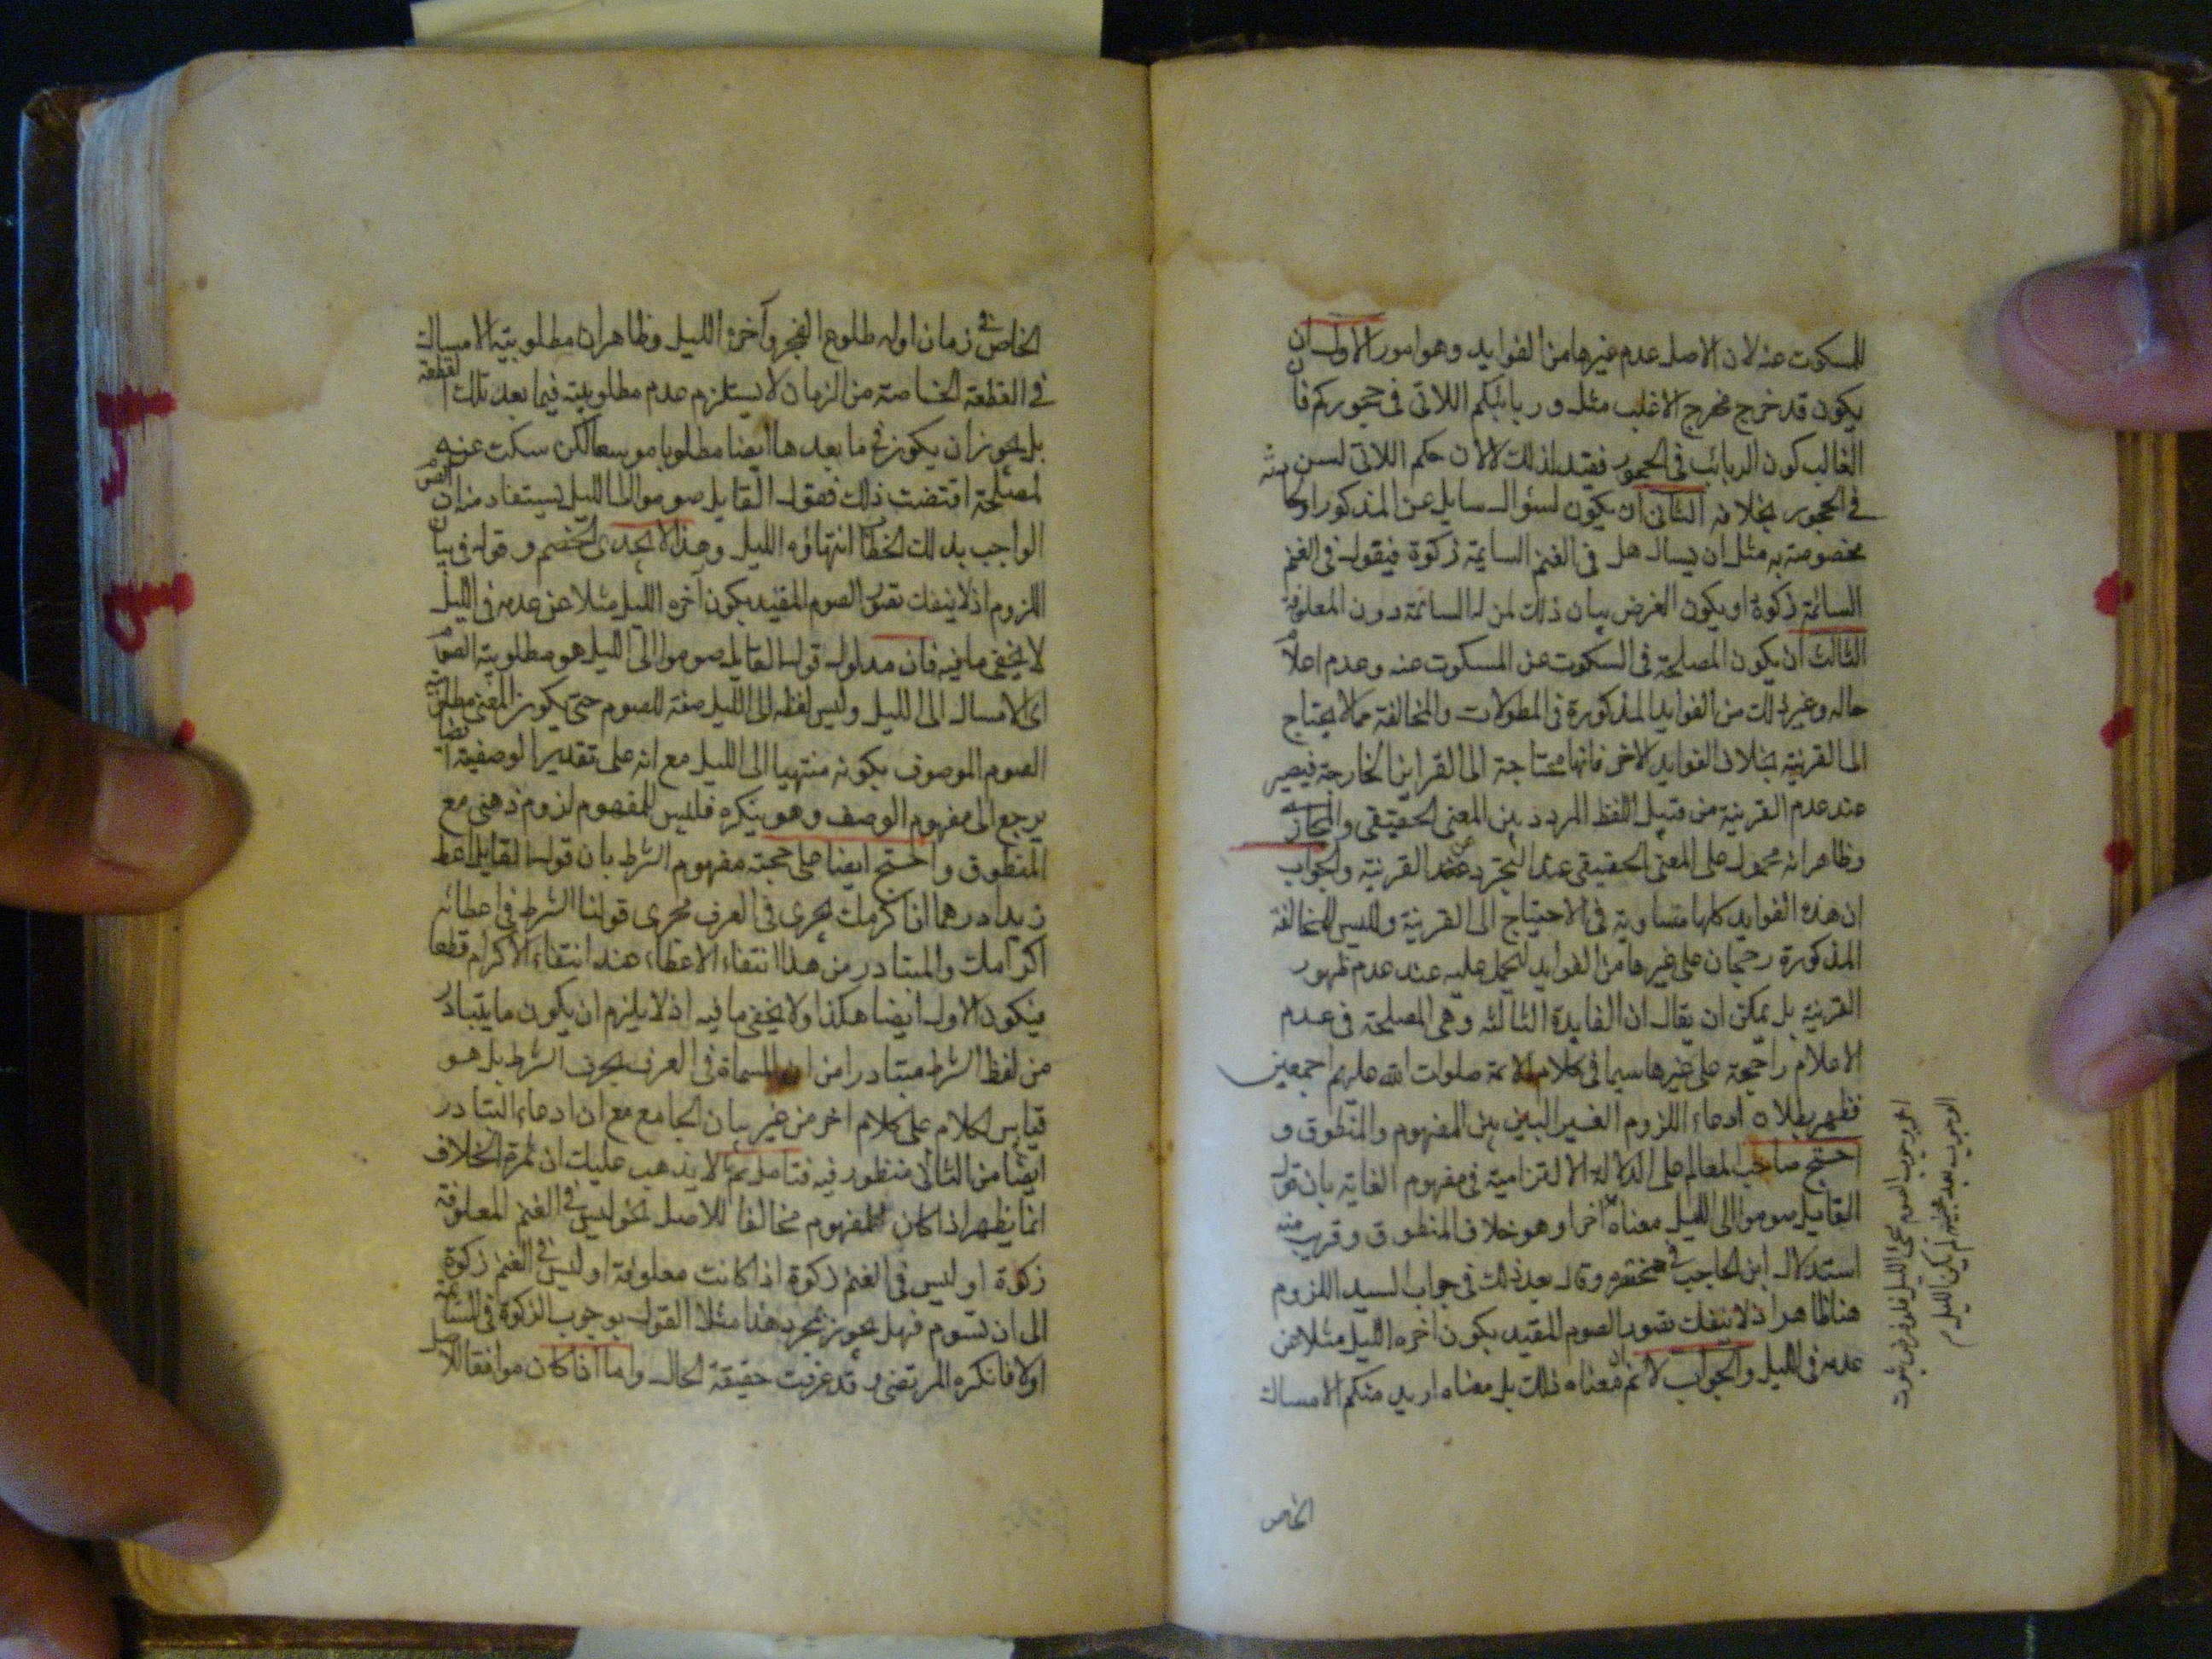 للمسكوت عنه لان الاصل عدم غيرها من الفوايد وهو امور الاول ان
يكون قد خرج مخرج الاغلب مثل وربائبكم اللاتى فى حجوركم فان
الغالب كون الربائب فى الحجور فقيد لذلك لا لان حكم اللاتى لسن
فى الحجور بخلافه الثانى ان يكون لسؤال سايل عن المذكور او
مخصوصة به مثل ان يسال هل فى الغنم السايمة زكوة فيقول فى الغنم
السائمة زكوة او يكون الغرض بيان ذلك لمن له السائمة دون المعلوفة
الثالث ان يكون المصلحة فى السكوت عن المسكوت عنه وعدم اعلام
حاله وغير ذلك من الفوايد المذكورة فى المطولات والمخالفة مما لا يحتاج
الى القرنية بخلاف الفوايد الاخر فانها محتاجة الى القراين الخارجة فيصير
عند عدم القرنية من قبيل اللفظ المردد بين المعنى الحقيقى والمجازى
وظاهر انه محمول على المعنى الحقيقى عند التجرد عن القرنية والجواب
ان هذه الفوايد كلها متساوية فى الاحتياج الى القرنية وليس للمخالفة
المذكورة رجحان على غيرها من الفوايد لتحمل عليه عند عدم ظهور
القرنية بل يمكن ان يقال ان الفايدة الثالثة وهى المصلحة فى عدم
الاعلام راجحة على غيرها سيما فى كلام الائمة صلوات الله عليهم اجمعين
فظهر بطلان ادعاء اللزوم الغير البين بين المفهوم والمنطوق و
احتج صاحب المعالم على الدلالة الالتزامية فى مفهوم الغاية بان قول
القايل صوموا الى الليل معناه اخرا وهو خلاف المنطوق وقريب منه
استدلال ابن الحاجب فى مختصره وقال بعد ذلك فى جواب السيد اللزوم
هنا ظاهر اذ لا ينفك تصور الصوم المقيد بكون اخره الليل مثلا عن
عدمه فى الليل والجواب لا نم ان معناه ذلك بل معناه اريد منكم الامساك
الخاص
الخاص فى زمان اوله طلوع الفجر وآخره الليل وظاهر ان مطلوبية الامساك
فى القطعة الخاصة من الزمان لا يستلزم عدم مطلوبيته فيما بعد تلك القطعة
بل يجوز ان يكون فى ما بعدها ايضا مطلوبا موسعا لكن سكت عنه
لمصلحة اقتضت ذلك فقول القايل صوموا الى الليل يستفاد منه ان الصوم
الواجب بذلك الخطاب انتهاؤه الليل وهذا لا يجدى الخصم وقوله فى بيان
اللزوم اذ لا ينفك تصور الصوم المقيد بكون آخره الليل مثلا عن عدمه فى الليل
لا يخفى ما فيه فان مدلول قول القايل صوموا الى الليل هو مطلوبية الصوم
اى الامساك الى الليل وليس لفظ الى الليل صفة للصوم حتى يكون المعنى مطلوبية
الصوم الموصوف بكونه منتهيا الى الليل مع انه على تقدير الوصفية ايضا
يرجع الى مفهوم الوصف وهو ينكره فليس للمفهوم لزوم ذهنى مع
المنطوق واحتج ايضا على حجية مفهوم الشرط بان قول القايل اعط
زيدا درهما ان اكرمك يجرى فى العرف مجرى قولنا الشرط فى اعطائه
اكرامك والمتبادر من هذا انتفاء الاعطاء عند انتفاء الاكرام قطعا
فيكون الاول ايضا هكذا ولا يخفى ما فيه اذ لا يلزم ان يكون ما يتبادر
من لفظ الشرط متبادرا من ان المسماة فى العرف بحرف الشرط بل هو
قياس كلام على كلام اخر من غير بيان الجامع مع ان ادعاء التبادر
ايضا من الثانى منظور فيه فتامل ثم لا يذهب عليك ان ثمرة الخلاف
انما يظهر اذا كان المفهوم مخالفا للاصل نحو ليس فى الغنم المعلوفة
زكوة او ليس فى الغنم زكوة اذا كانت معلوفة او ليس فى الغنم زكوة
الى ان تسوم فهل يجوز بمجرد هذا مثلا القول بوجوب الزكوة فى السائمة
اولا فانكره المرتضى وقد عرفت حقيقة الحال واما اذا كان موافقا للاصل